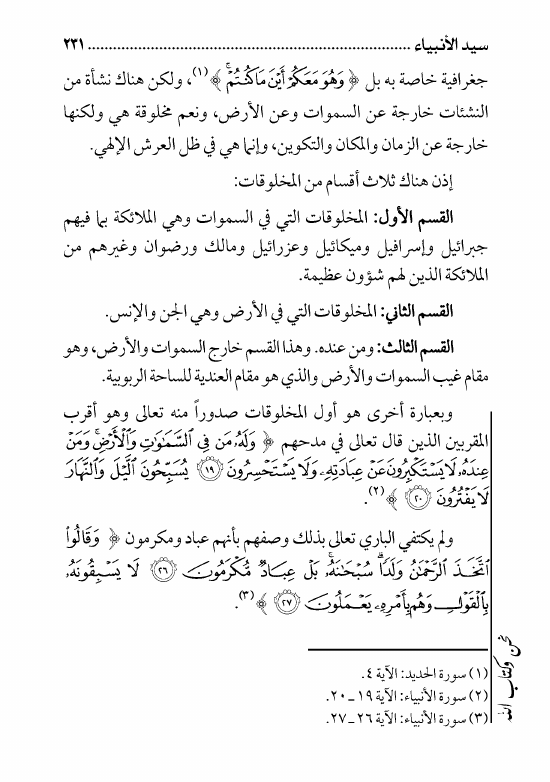 سيد الأنبياء ........................................................................... ٢٣١
جغرافية خاصة به بل ﴿ وَهُوَ مَعَكُمْ أَيْنَ مَا كُنتُمْ ﴾(١)، ولكن هناك نشأة من
النشئات خارجة عن السموات وعن الأرض، ونعم مخلوقة هي ولكنها
خارجة عن الزمان والمكان والتكوين، وإنما هي في ظل العرش الإلهي.
إذن هناك ثلاث أقسام من المخلوقات:
القسم الأول: المخلوقات التي في السموات وهي الملائكة بما فيهم
جبرائيل وإسرافيل وميكائيل وعزرائيل ومالك ورضوان وغيرهم من
الملائكة الذين لهم شؤون عظيمة.
القسم الثاني: المخلوقات التي في الأرض وهي الجن والإنس.
القسم الثالث: ومن عنده. وهذا القسم خارج السموات والأرض، وهو
مقام غيب السموات والأرض والذي هو مقام العندية للساحة الربوبية.
وبعبارة أخرى هو أول المخلوقات صدوراً منه تعالى وهو أقرب
المقربين الذين قال تعالى في مدحهم ﴿ وَلَهُۥ مَن فِى ٱلسَّمَٰوَٰتِ وَٱلْأَرْضِ ۚ وَمَنْ
عِندَهُۥ لَا يَسْتَكْبِرُونَ عَنْ عِبَادَتِهِۦ وَلَا يَسْتَحْسِرُونَ ۝١٩ يُسَبِّحُونَ ٱلَّيْلَ وَٱلنَّهَارَ
لَا يَفْتُرُونَ ۝٢٠ ﴾(٢).
ولم يكتفي الباري تعالى بذلك وصفهم بأنهم عباد ومكرمون ﴿ وَقَالُوا۟
ٱتَّخَذَ ٱلرَّحْمَٰنُ وَلَدًا ۗ سُبْحَٰنَهُۥ ۚ بَلْ عِبَادٌ مُّكْرَمُونَ ۝٢٦ لَا يَسْبِقُونَهُۥ
بِٱلْقَوْلِ وَهُم بِأَمْرِهِۦ يَعْمَلُونَ ۝٢٧ ﴾(٣).
(١) سورة الحديد: الآية ٤.
(٢) سورة الأنبياء: الآية ١٩ـ٢٠.
(٣) سورة الأنبياء: الآية ٢٦ـ٢٧.
نحن وكتاب الله